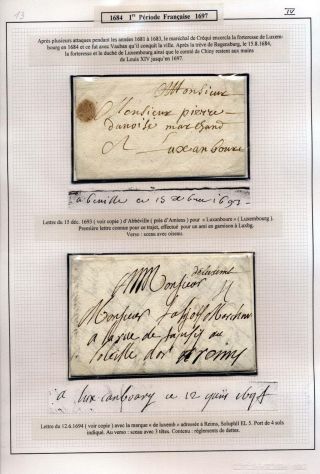 13
IV
1684 1re Période Française 1697
Après plusieurs attaques pendant les années 1681 à 1683, le maréchal de Créqui encercla la forteresse de Luxem-
bourg en 1684 et ce fut avec Vauban qu'il conquit la ville. Après la trève de Regensburg, le 15.8.1684,
la forteresse et le duché de Luxembourg ainsi que le comté de Chiny restent aux mains
de Louis XIV jusqu'en 1697.
A Monsieur
Monsieur pierre
danoise marchand
A Luxanboure
a beuille ce 15 1693
Lettre du 15 déc. 1693 ( voir copie ) d'Abbéville ( près d'Amiens ) pour « Luxanbourc » ( Luxembourg ).
Première lettre connue pour ce trajet, effectué pour un ami en garnison à Luxbg.
Verso : sceau avec oiseau.
deluxemb
Monsieur
Monsieur
a la rue de
soleille dor a reims
a lux anbourg ce 12 1694
Lettre du 12.6.1694 ( voir copie ) avec la marque « de luxemb » adressée à Reims, Soluphil EL 5. Port de 4 sols
indiqué. Au verso : sceau avec 3 têtes. Contenu : règlements de dettes.